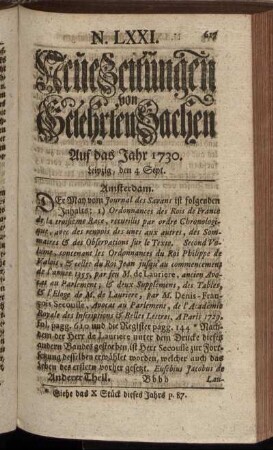 N. LXXI. 617
Neue Zeitungen
von
Gelehrten Sachen
Auf das Jahr 1730.
Leipzig, den 4 Sept.
Amsterdam.
DEr May vom Journal des Savans ist folgenden
Inhalts: 1) Ordonnances des Rois de France
de la troisieme Race, recueillies par ordre Chronologi-
que, avec des renvois des unes aux autres, des Som-
maires & des Observations sur le Texte. Second Vo-
lume, contenant les Ordonnances du Roi Philippe de
Valois, & celles du Roi Jean jusqu'au commencement
de l'annee 1355, par feu M. de Lauriere, ancien Avo-
cat au Parlement; & deux Supplemens, des Tables,
& l'Eloge de M. de Lauriere, par M. Denis-Fran-
çois Secousse, Avocat au Parlement, de l'Academie
Royale des Inscriptions & Belles Lettres, A Paris 1729.
fol. pagg. 610 und die Register pagg. 144 * Nach-
dem der Herr de Lauriere unter dem Drucke dieses
andern Bandes gestorben ist Herr Secousse zur Fort-
setzung desselben erwählet worden, welcher auch das
Leben des erstern vorher gesetzt. Eusebius Jacobus de
Anderer Theil. Bbbb Lau-
* Siehe das X Stück dieses Jahrs p. 87.